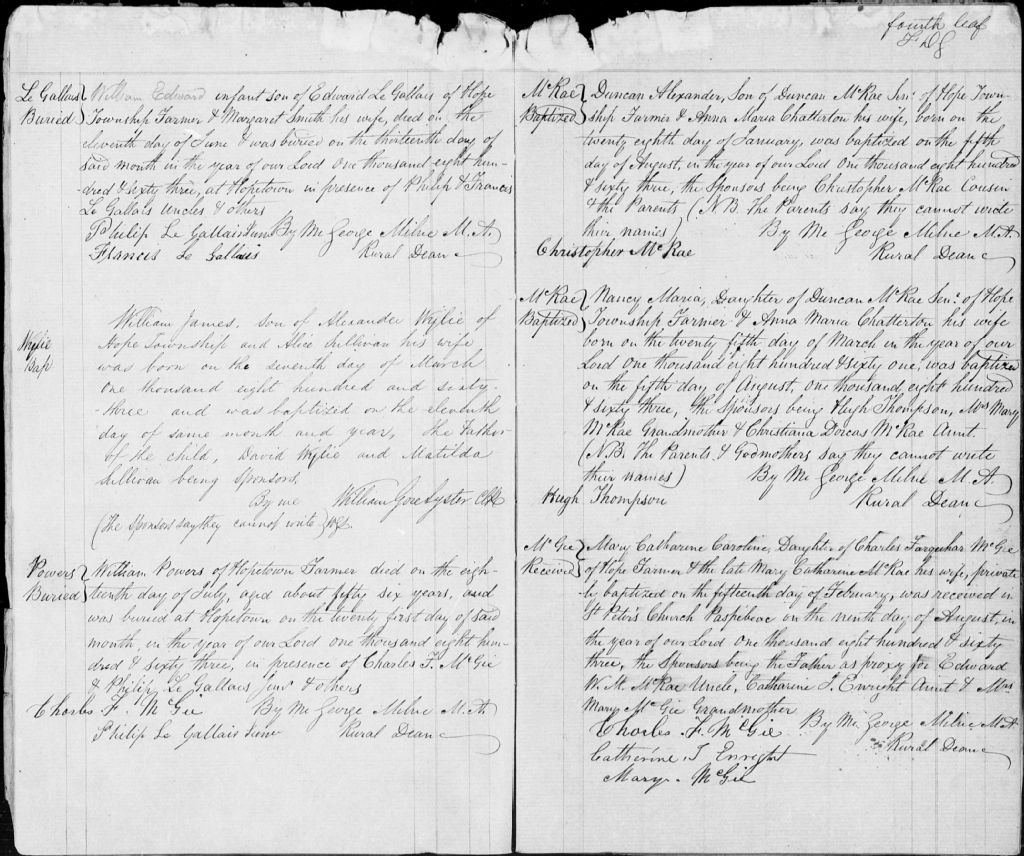 fourth leaf
Le Gallais
Buried
William Edward infant son of Edward Le Gallais of Hope
Township Farmer & Margaret Smith his wife, died on the
eleventh day of June & was buried on the thirteenth day of
said month in the year of our Lord One thousand eight hun-
dred & sixty three, at Hopetown in presence of Philip & Francis
Le Gallais Uncles & others
Philip Le Gallais Junr By Me George Milne M.A.
Francis Le Gallais Rural Dean
Wylie
Bap
William James, son of Alexander Wylie of
Hope Township and Alice Sullivan his wife
was born on the seventh day of March
one thousand eight hundred and sixty-
-three and was baptized on the eleventh
day of same month and year, the Father
of the child, David Wylie and Matilda
Sullivan being Sponsors.
By me William Gore Lyster
(The Sponsors say they cannot write)
Powers
Buried
William Powers of Hopetown Farmer died on the eigh-
teenth day of July, aged about fifty six years, and
was buried at Hopetown on the twenty first day of said
month, in the year of our Lord one thousand eight hun-
dred & sixty three, in presence of Charles F. McGie
& Philip Le Gallais Junr & others
Charles F. McGie By Me George Milne M.A.
Philip Le Gallais Junr Rural Dean
McRae
Baptized
Duncan Alexander, Son of Duncan McRae Senr. of Hope Town-
ship Farmer & Anna Maria Chatterton his wife, born on the
twenty eighth day of January, was baptized on the fifth
day of August, in the year of our Lord One thousand eight hundred
& sixty three, the Sponsors being Christopher McRae Cousin
& the Parents (N.B. The Parents say they cannot write
their names) By Me George Milne M.A.
Christopher McRae Rural Dean
McRae
Baptized
Nancy Maria, Daughter of Duncan McRae Senr. of Hope
Township Farmer & Anna Maria Chatterton his wife
born on the twenty fifth day of March in the year of our
Lord One thousand eight hundred & sixty one, was baptized
on the fifth day of August, One thousand eight hundred
& sixty three, the Sponsors being Hugh Thompson, Mrs Mary
McRae Grandmother & Christiana Dorcas McRae Aunt.
(N.B. The Parents & Godmothers say they cannot write
their names) By Me George Milne M.A.
Hugh Thompson Rural Dean
McGie
Received
Mary Catharine Caroline, Daughter of Charles Farquhar McGie
of Hope Farmer & the late Mary Catharine McRae his wife, private-
ly baptized on the fifteenth day of February, was received in
St Peter's Church Paspebiac on the ninth day of August, in
the year of our Lord One thousand eight hundred & sixty
three, the Sponsors being the Father as proxy for Edward
W. M. McRae Uncle, Catharine J. Enright Aunt & Mrs
Mary McGie Grandmother
Charles F. McGie By Me George Milne M.A.
Catherine J Enright Rural Dean
Mary McGie